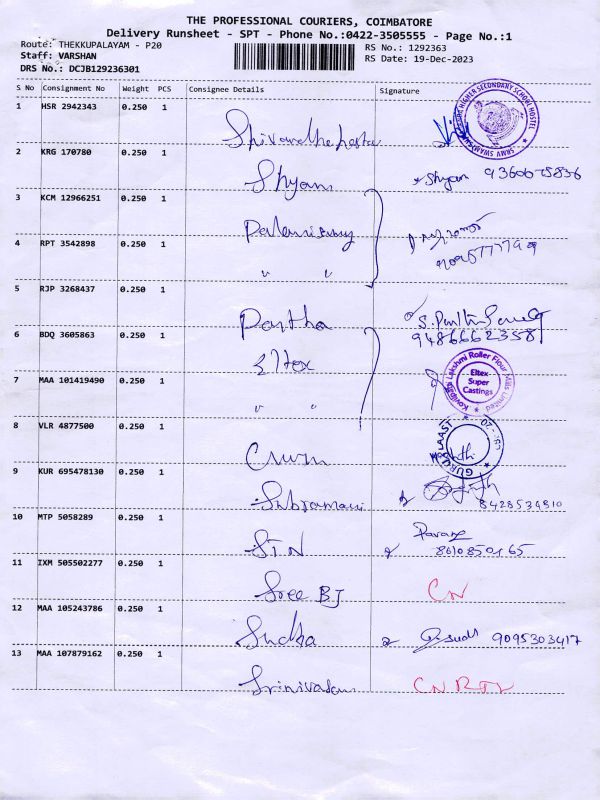 THE PROFESSIONAL COURIERS, COIMBATORE
Delivery Runsheet - SPT - Phone No.:0422-3505555 - Page No.:1
Route: THEKKUPALAYAM - P20
RS No.: 1292363
Staff: VARSHAN
RS Date: 19-Dec-2023
DRS No.: DCJB129236301
S No Consignment No Weight PCS Consignee Details Signature
1 HSR 2942343 0.250 1
2 KRG 170780 0.250 1 Shyam Shyam
3 KCM 12966251 0.250 1 Palanisamy
4 RPT 3542898 0.250 1 " "
5 RJP 3268437 0.250 1 Partha
9486662358
6 BDQ 3605863 0.250 1 Eltex
Kovilpatti Lakshmi Roller Flour Mills Limited
Eltex
Super
Castings
7 MAA 101419490 0.250 1 " "
8 VLR 4877500 0.250 1
9 KUR 695478130 0.250 1 Subramani
10 MTP 5058289 0.250 1 STN
11 IXM 505502277 0.250 1 Sree BJ CN
12 MAA 105243786 0.250 1 Sudha 9095303417
13 MAA 107879162 0.250 1 Srinivasan CN RTN